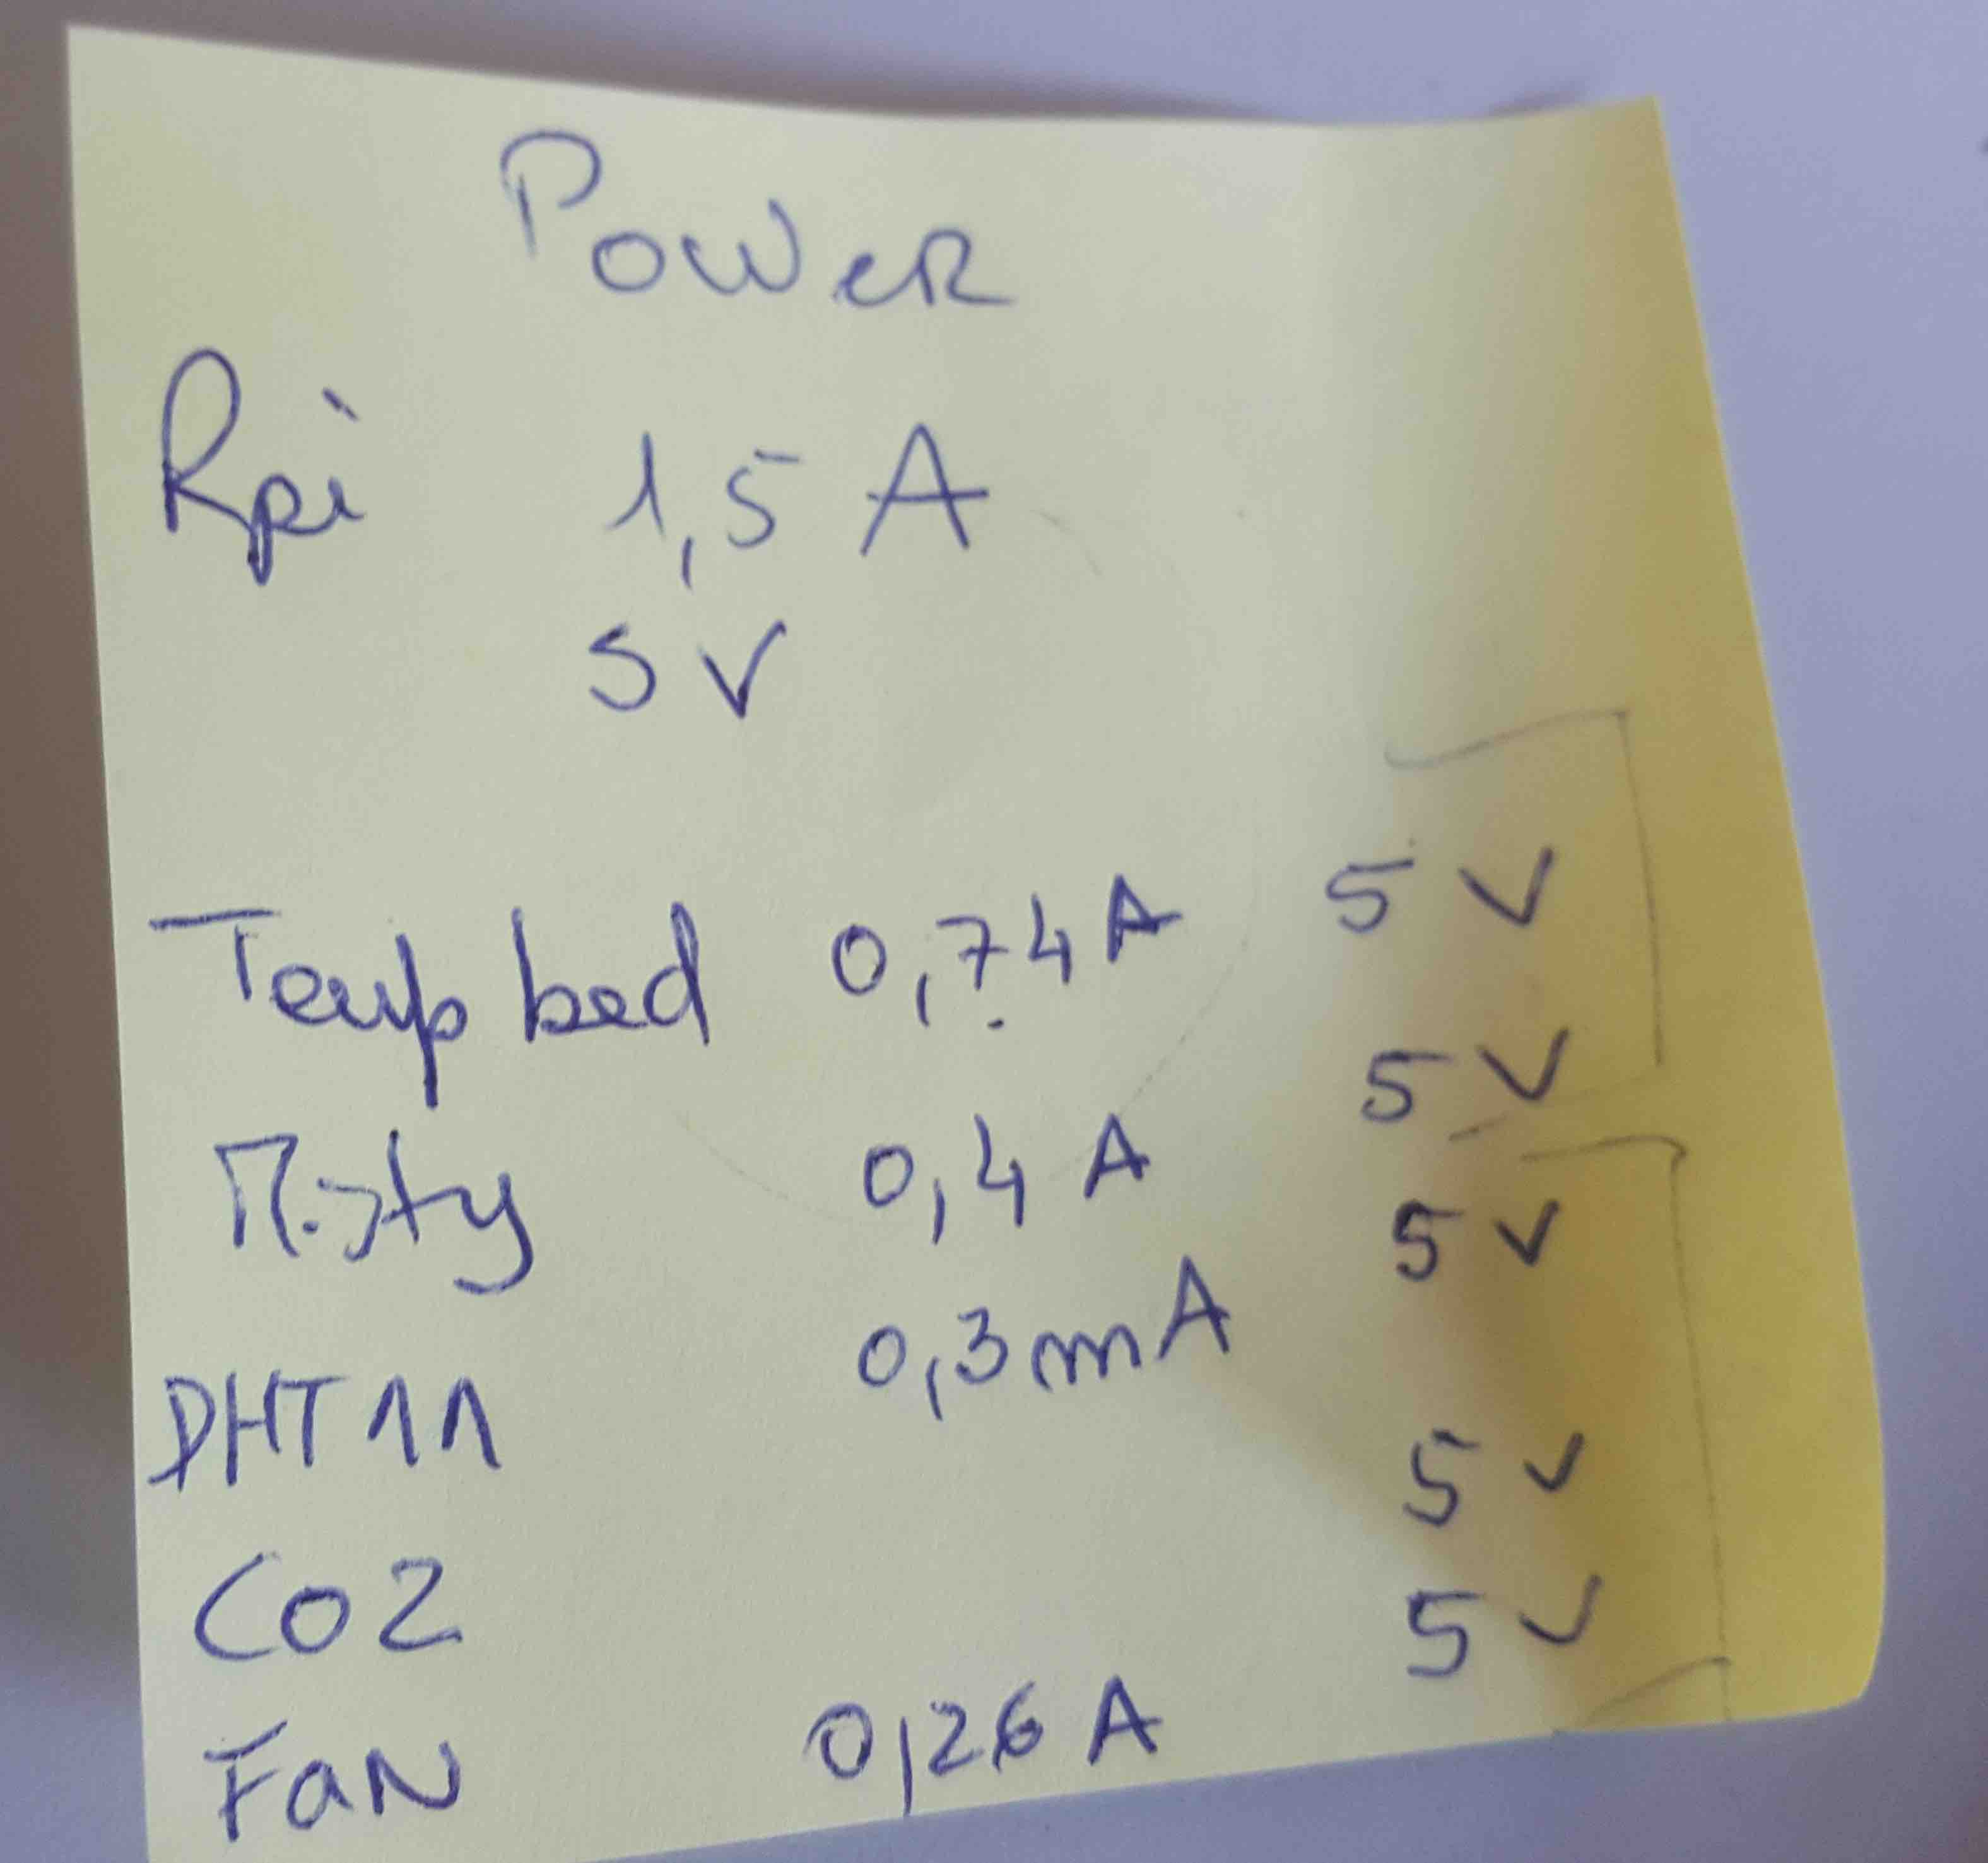 Power
Rpi 1,5 A
5 V
Temp bed 0,74A 5 V
Misty 0,4 A 5 V
DHT11 0,3mA 5 V
CO2 5 V
Fan 0,26 A 5 V